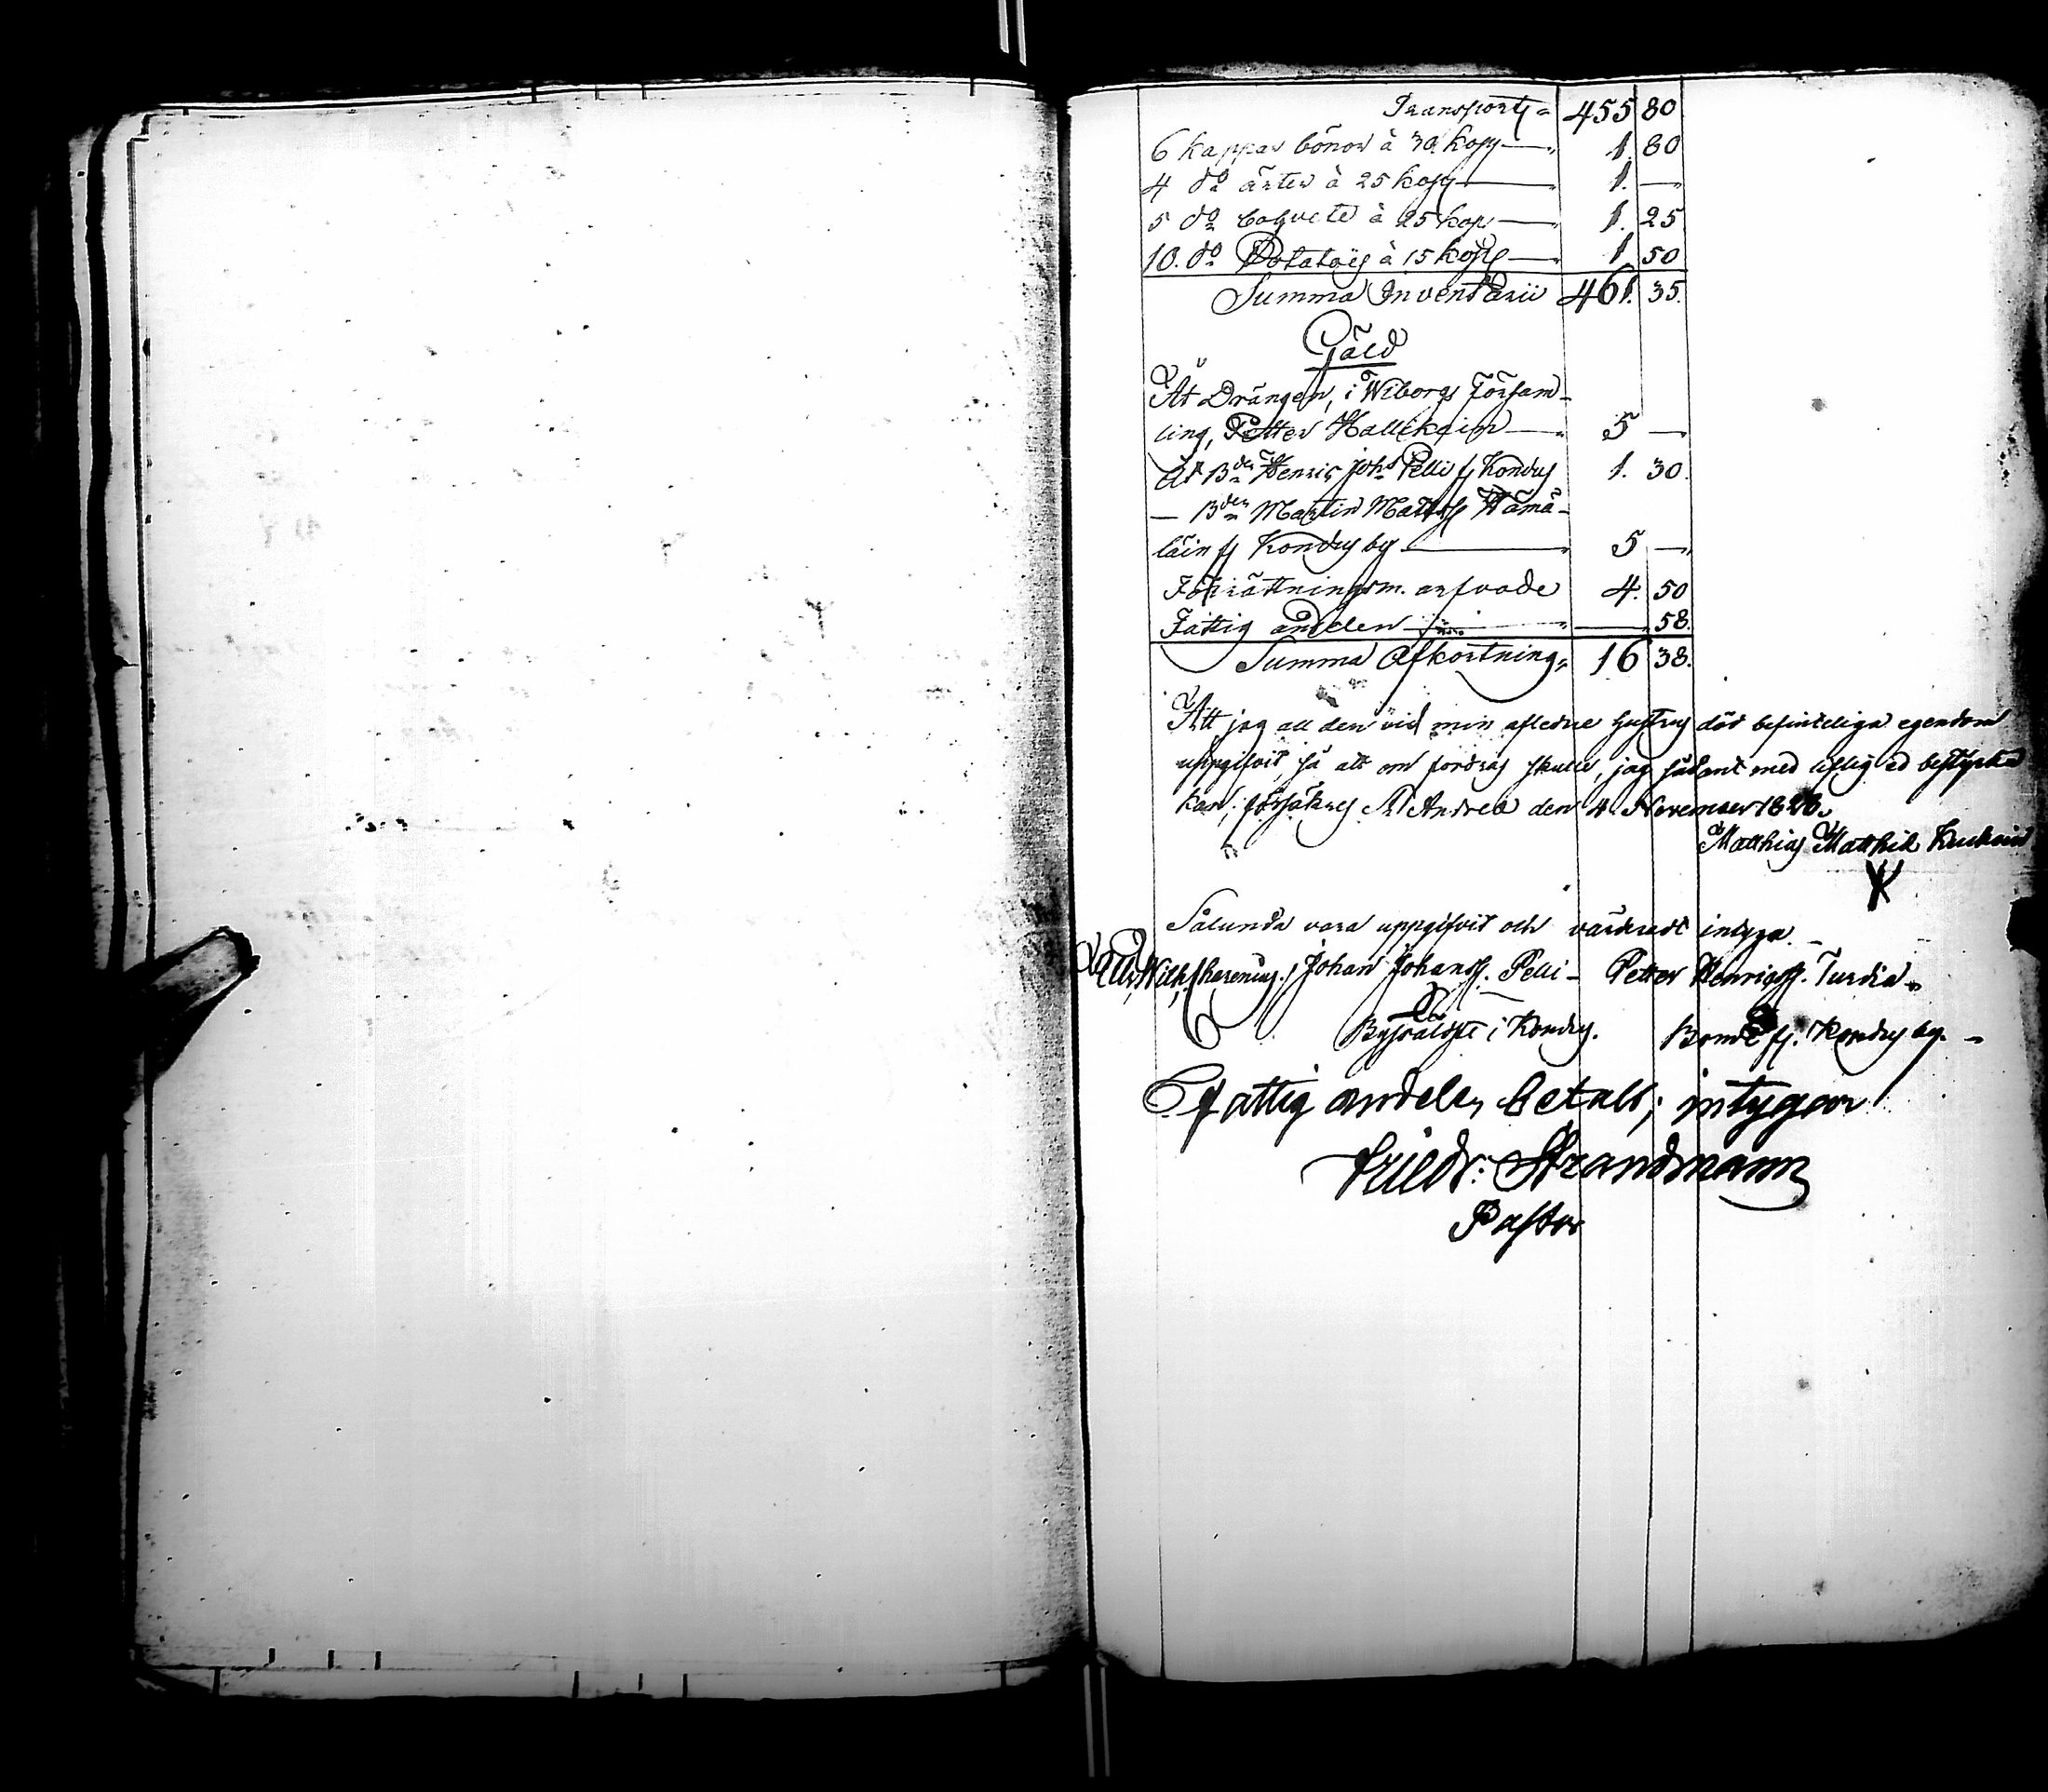 Transport = 455 80
6 kappar bönor à 30 kop — 1. 80
4 do ärter à 25 kop — 1. —
5 do bohvete à 25 kop — 1. 25
10. do Potatoës à 15 kop — 1. 50
Summa Inventarii 461. 35.
Gäld
Åt Drängen, i Wiborgs Försam-
ling, Petter Hallikain — 5 —
Åt Bden Henric Johs Pelli fr Kondus 1. 30.
— Bden Martin Matts Hämä-
läin fr Kondus by — 5 —
Förrättningsm. arfvode 4. 50
Fattig andelen — 58.
Summa Afkortning = 16 38.
Att jag all den vid min afledne hustrus död befinteliga egendom
uppgifvit, så att om fordras skulle, jag sådant med liflig ed bestyrka
kan, försäkras St Andreæ den 4 November
Matthias Matthiæ
Sålunda vara uppgifvit och värderadt intyga. —
Johan Johanss. Pelli — Petter Henricss. Turkia —
i Kondus. Bonde fr. Kondus by. —
Fattig andelen betalt, intygar
Friedr: Strandmann
Pastor